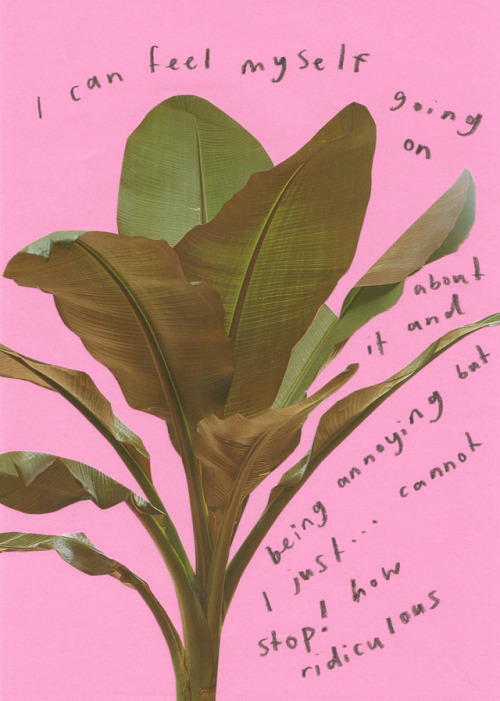 I can feel myself going
on
about
it and
being annoying but
I just... cannot
stop! how
ridiculous